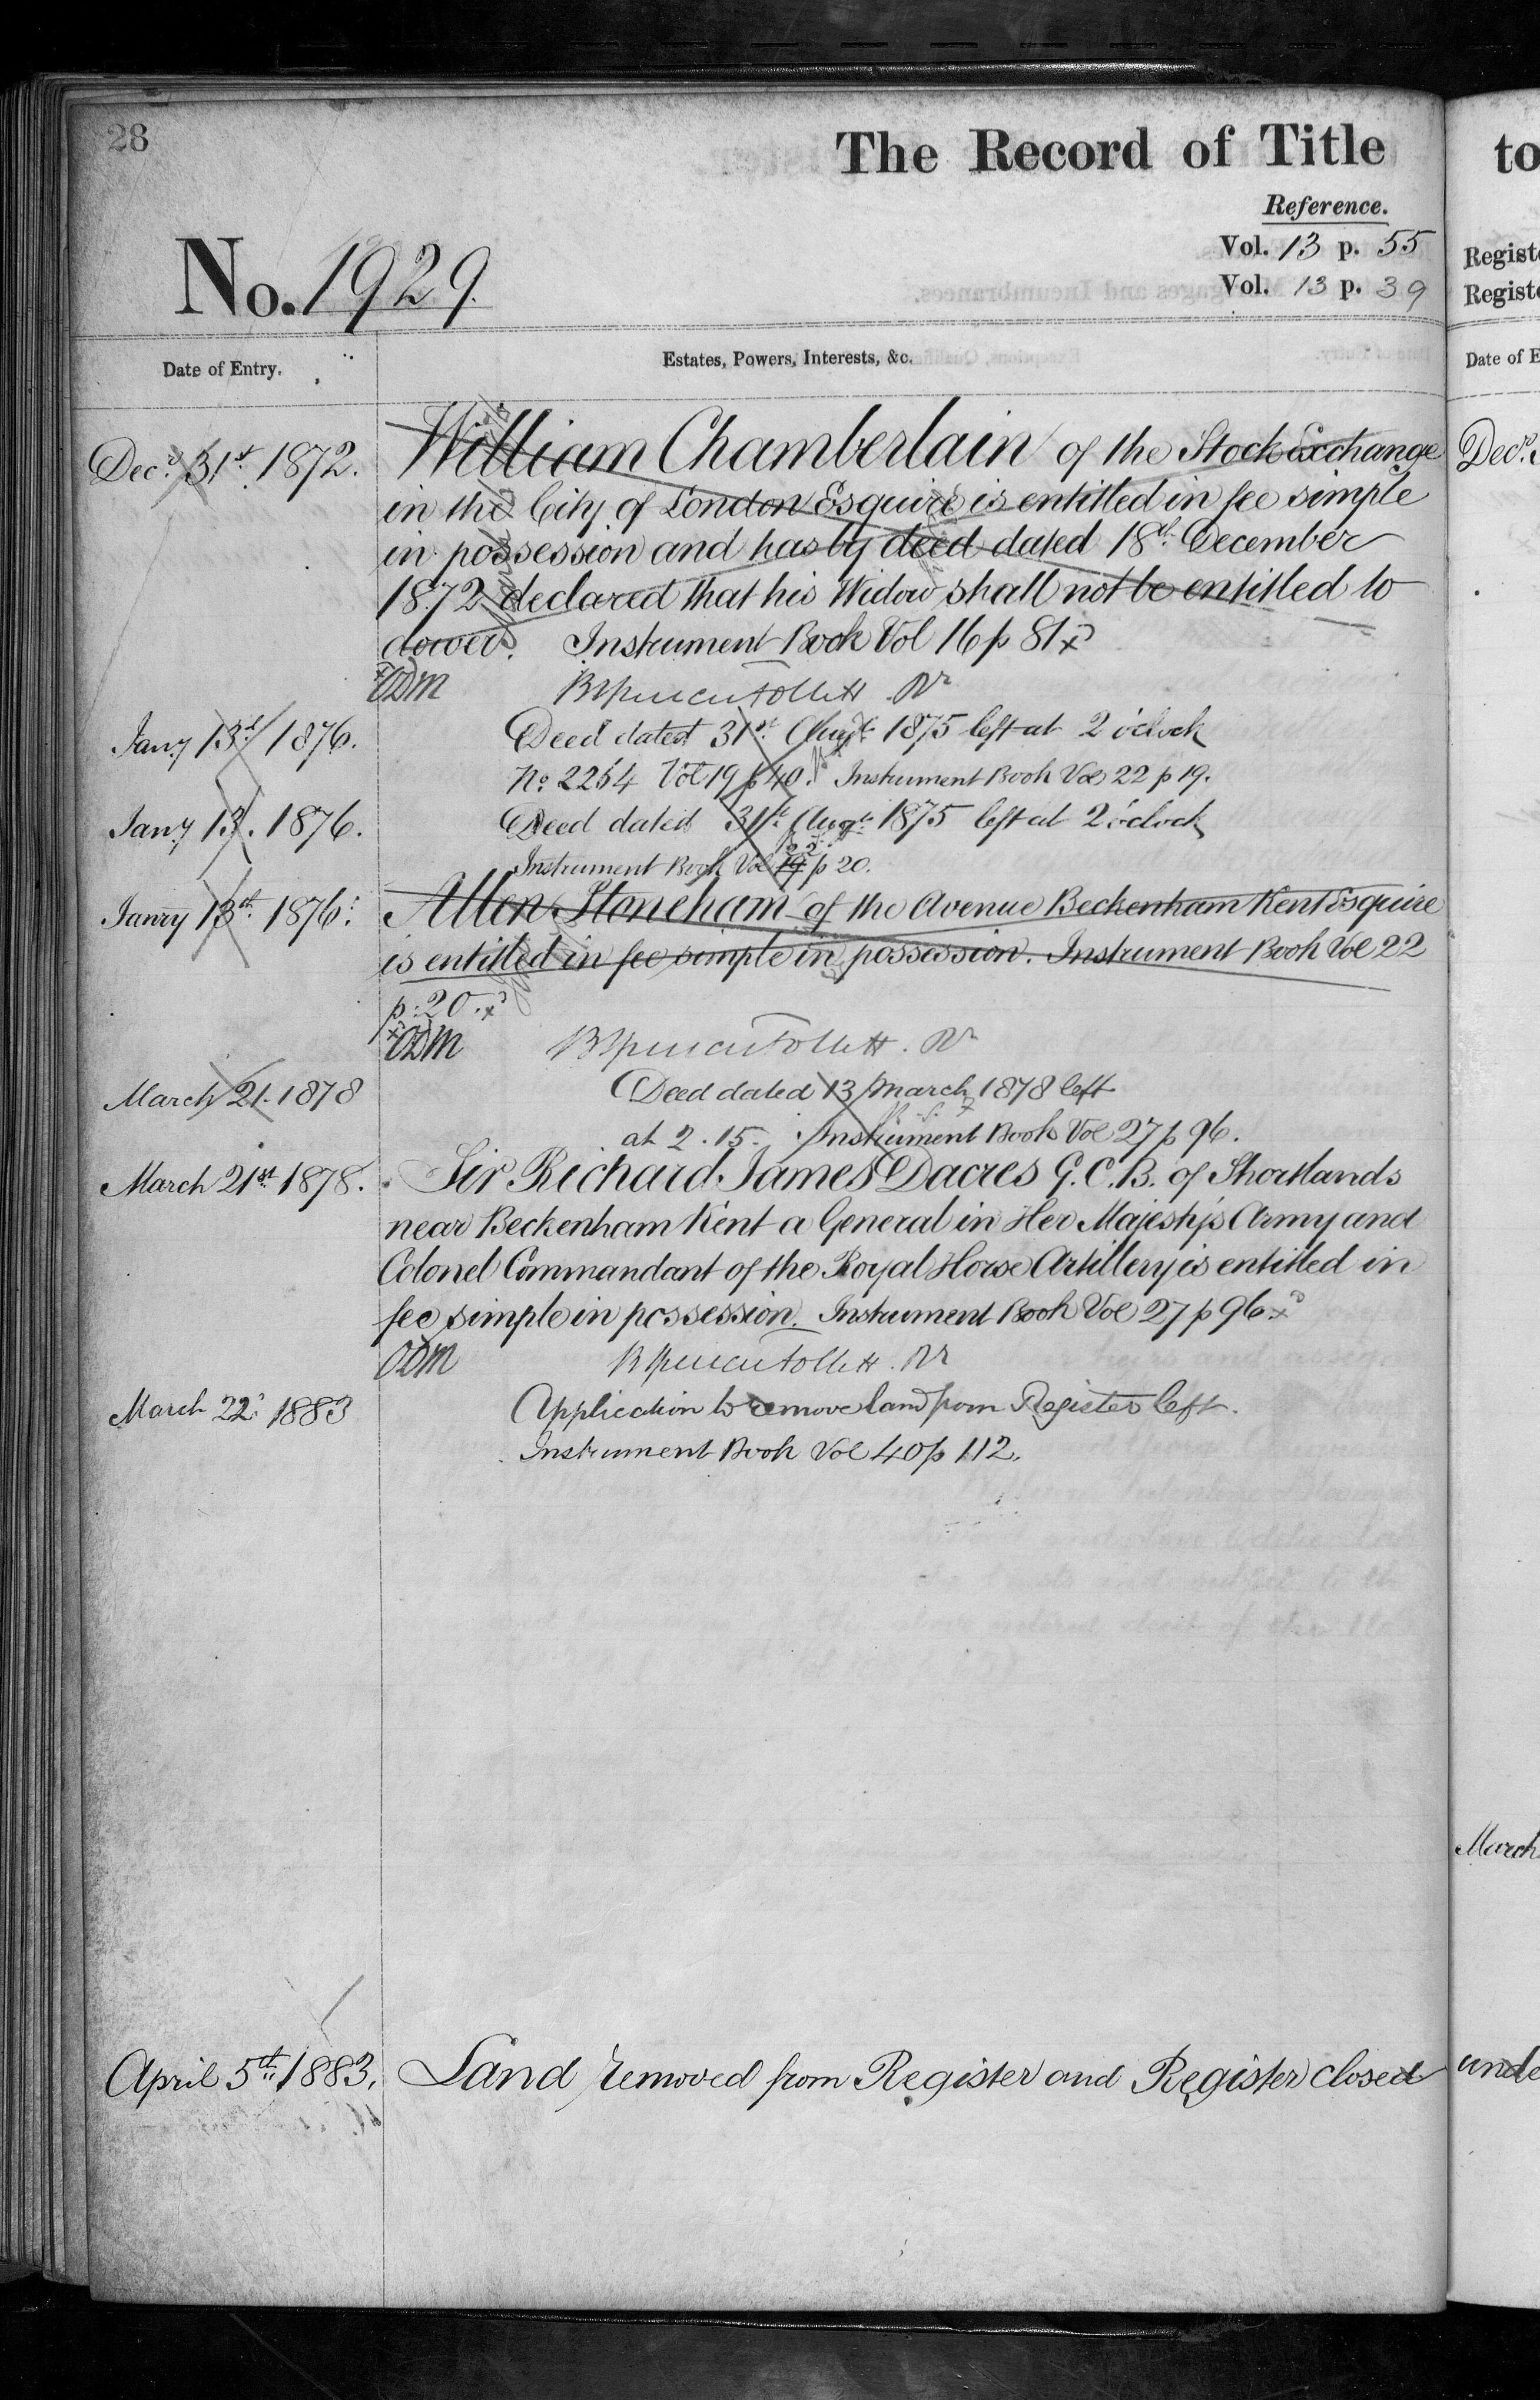 28
The Record of Title
Reference.
No. 1929.
Vol. 13 p. 55
Vol. 13 p. 39
Date of Entry.
Estates, Powers, Interests, &c.
Decr. 31st. 1872.
William Chamberlain of the Stock Exchange
in the City of London Esquire is entitled in fee simple
in possession and has by deed dated 18th December
1872 declared that his Widow shall not be entitled to
dower. Instrument Book Vol 16 p 81
ODM
Jany 13th 1876.
Deed dated 31st. Augt. 1875 left at 2 o'clock
No 2254 Vol 19 p 40. Instrument Book Vol 22 p 19.
Jany 13. 1876.
Deed dated 31st. Augt. 1875 left at 2 o'clock
22
Instrument Book Vol 19 p 20.
Janry 13th. 1876.
Allen Stoneham of the Avenue Beckenham Kent Esquire
is entitled in fee simple in possession. Instrument Book Vol 22
p. 20.
ODM
March 21. 1878
Deed dated 13 March 1878 left
at 2.15. Instrument Book Vol 27 p 96.
March 21st. 1878.
Sir Richard James Dacres G.C.B. of Shortlands
near Beckenham Kent a General in Her Majesty's Army and
Colonel Commandant of the Royal Horse Artillery is entitled in
fee simple in possession. Instrument Book Vol 27 p 96.
ODM
March 22 1883
Application to remove land from Register left.
Instrument Book Vol 40 p 112.
April 5th. 1883.
Land removed from Register and Register closed
to
Regist
Regist
Date of E
Decr.
March
unde